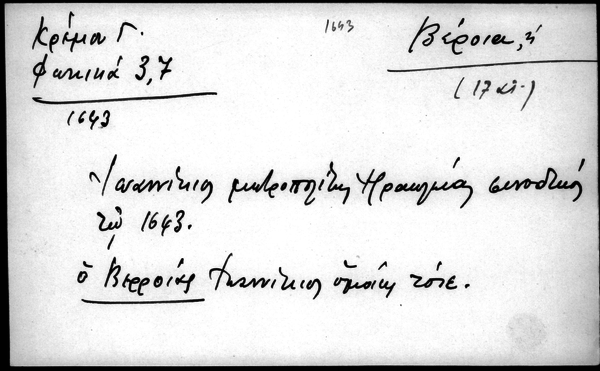 Κρέμου Γ.
Φωκικά 3,7
1643
1643
Βέροια, ἡ
(17 αἰ.)
Ἰωαννίκιος μητροπολίτης Ἡρακλείας συνοδικός
τῷ 1643.
ὁ Βερροίας Ἰωαννίκιος ὁμοίως τότε.